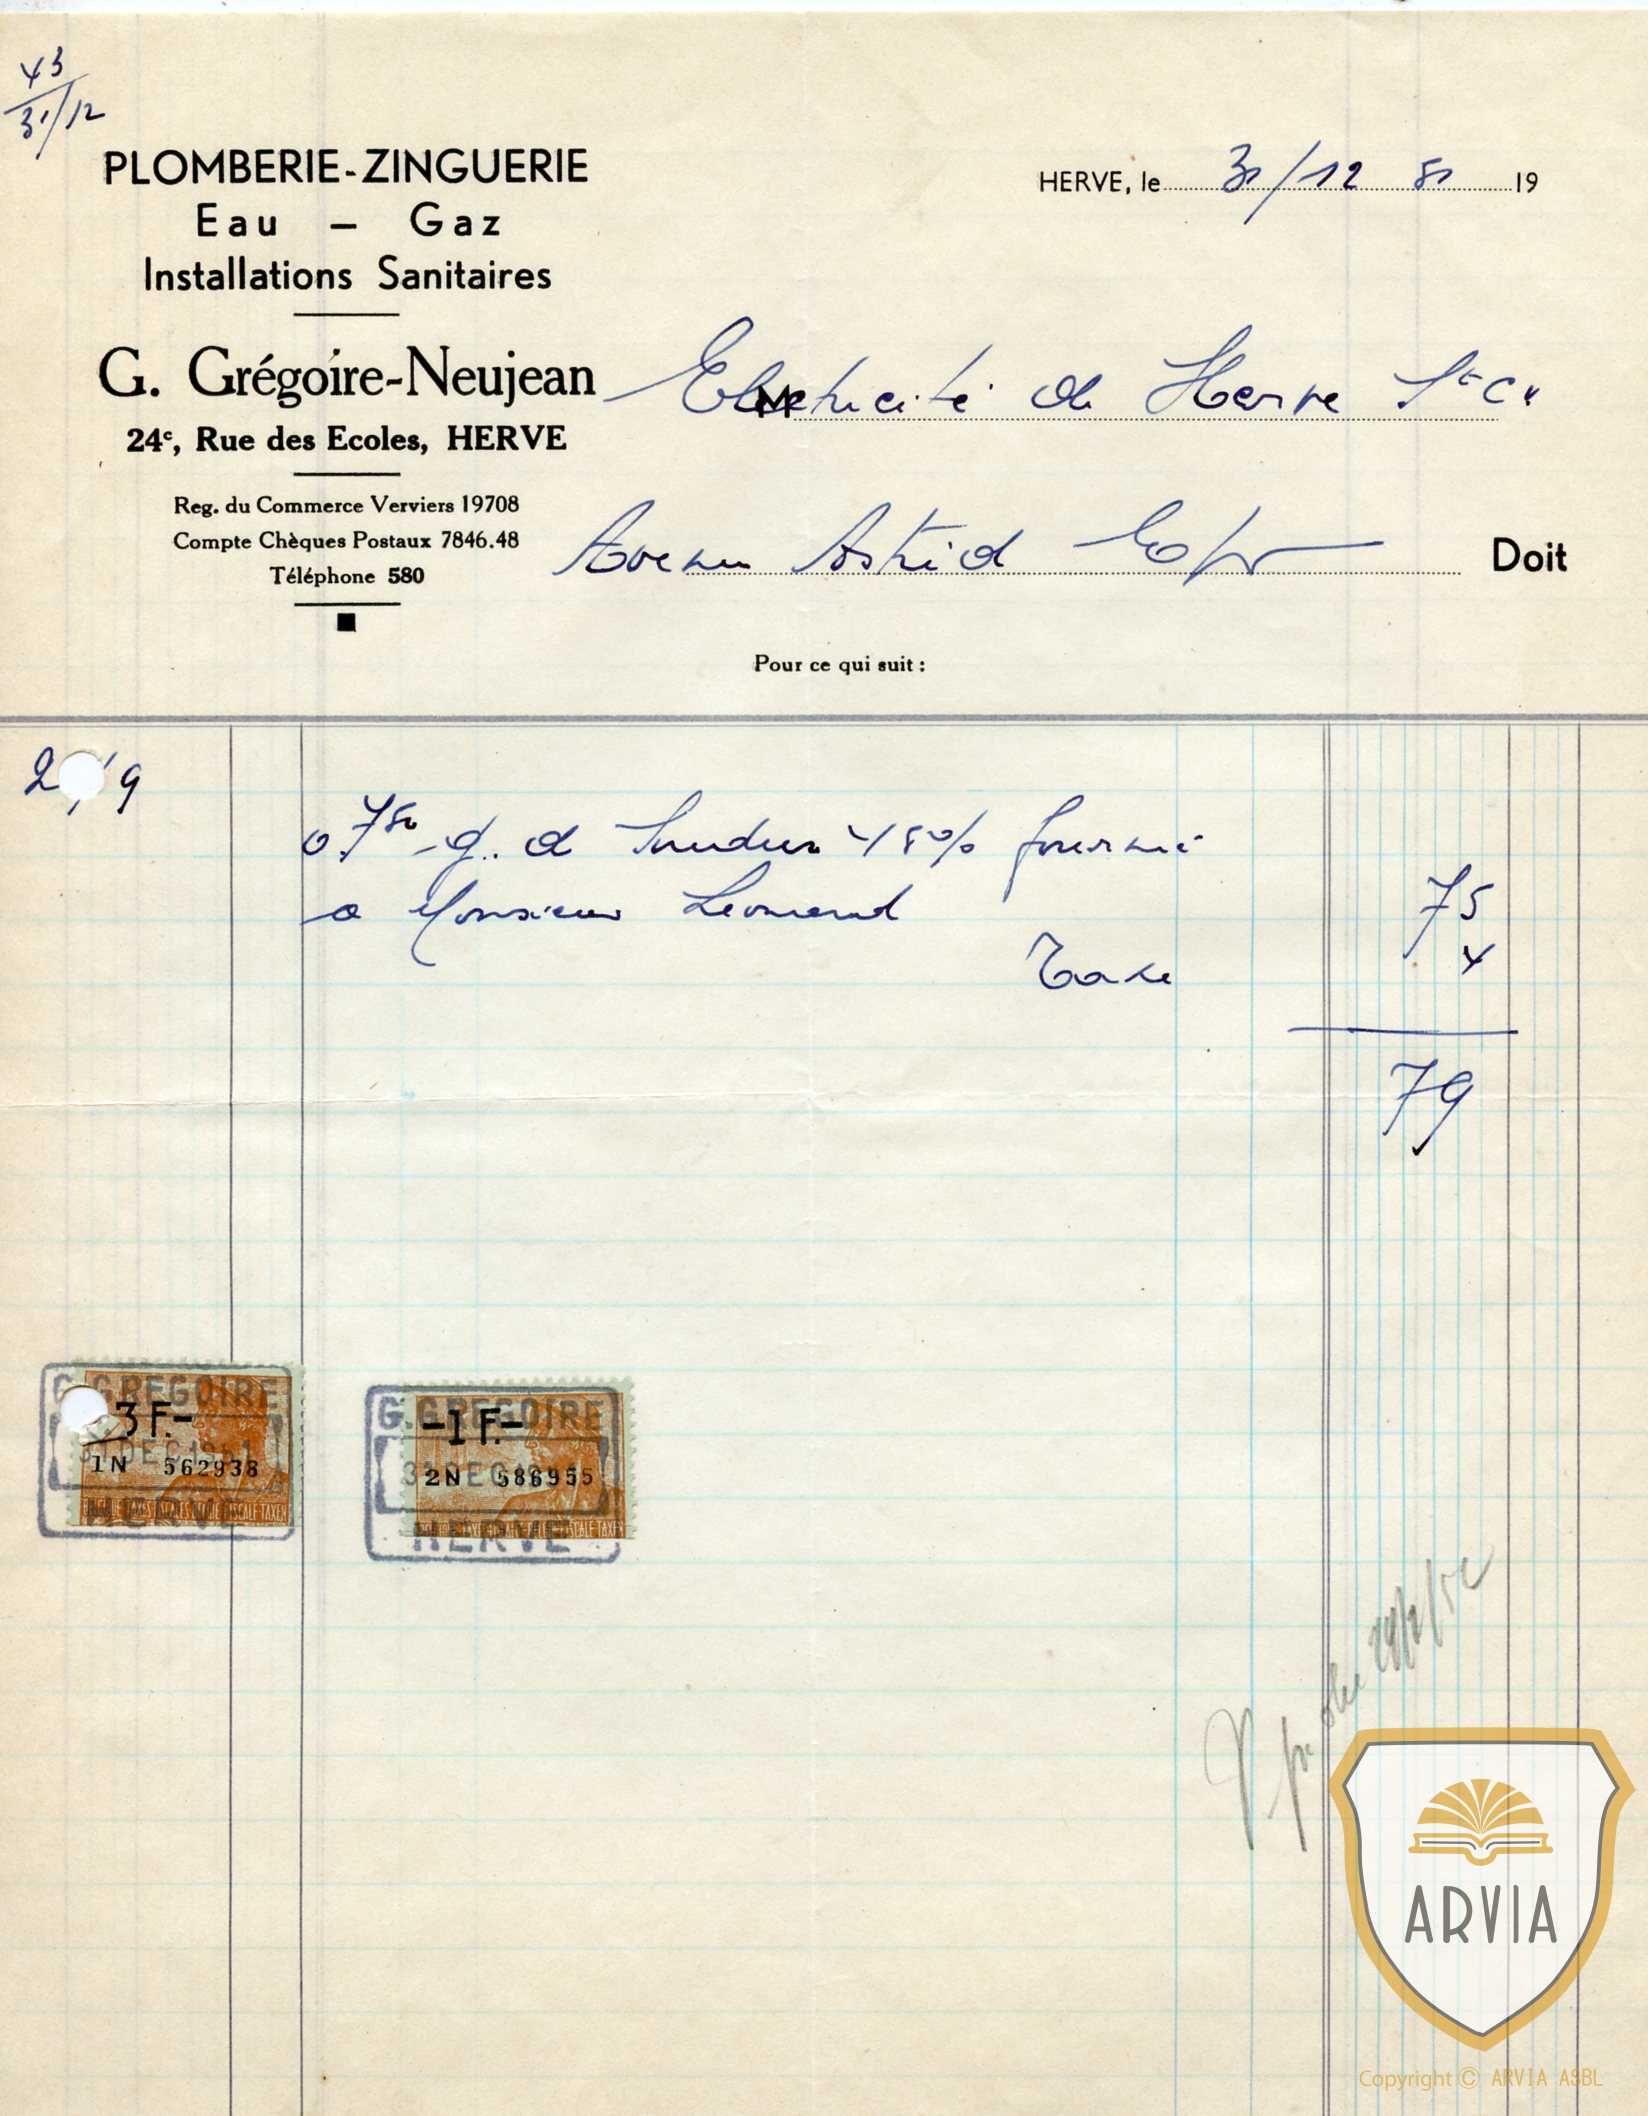 43
31/12
PLOMBERIE-ZINGUERIE
Eau – Gaz
Installations Sanitaires
HERVE, le 31/12 51 19
G. Grégoire-Neujean
24c, Rue des Ecoles, HERVE
M Electricité de Herve
Reg. du Commerce Verviers 19708
Compte Chèques Postaux 7846.48
Téléphone 580
Avenue Astrid
Doit
Pour ce qui suit :
2 / 9
0.750 g. de Soudure 45% fourni
a Monsieur Leonard 75
Taxe 4
79
G. GREGOIRE
3 F.-
31 DEC 1951
1N 562938
HERVE
G. GREGOIRE
-1 F.-
31 DEC
2N 586955
HERVE
ARVIA
Copyright © ARVIA ASBL